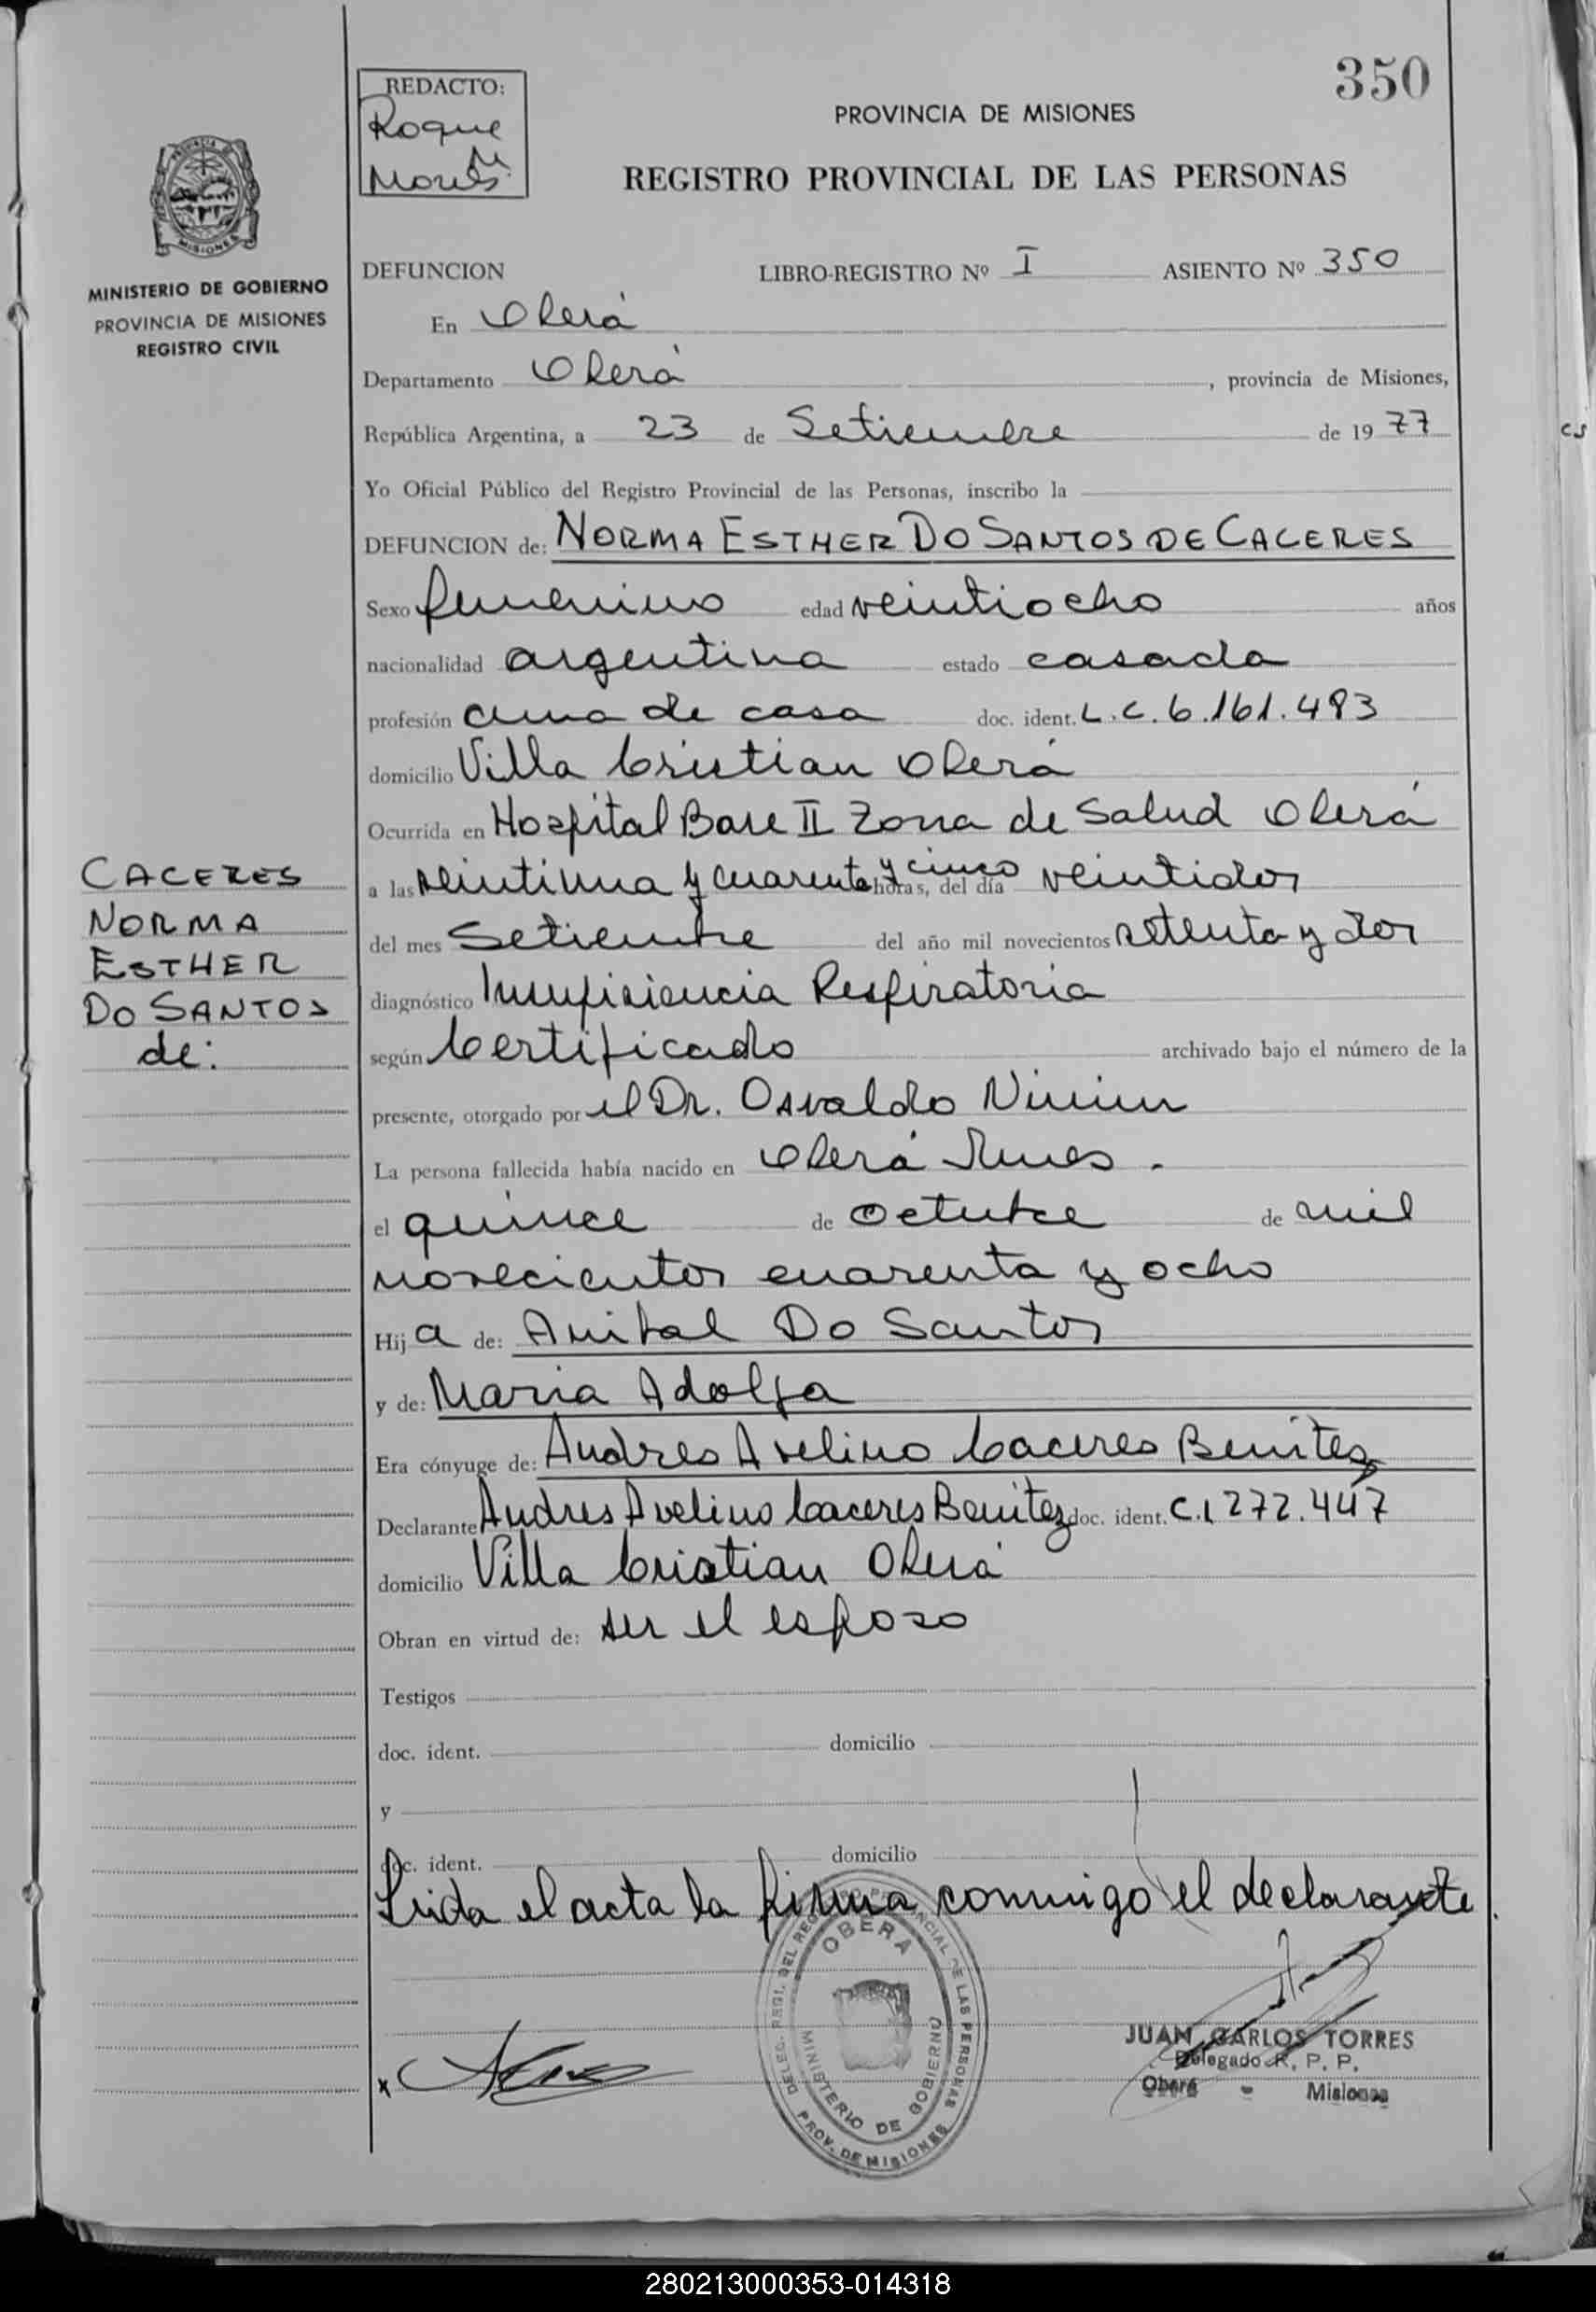 350
REDACTO:
Roque
PROVINCIA DE MISIONES
REGISTRO PROVINCIAL DE LAS PERSONAS
MINISTERIO DE GOBIERNO
PROVINCIA DE MISIONES
REGISTRO CIVIL
DEFUNCION LIBRO-REGISTRO Nº I ASIENTO Nº 350
En Oberá
Departamento Oberá, provincia de Misiones,
República Argentina, a 23 de Setiembre de 1977
Yo Oficial Público del Registro Provincial de las Personas, inscribo la
DEFUNCION de: NORMA ESTHER DO SANTOS DE CACERES
Sexo femenino edad veintiocho años
nacionalidad argentina estado casada
profesión ama de casa doc. ident. L.C. 6.161.493
domicilio Villa Cristian Oberá
Ocurrida en Hospital Base II Zona de Salud Oberá
a las veintiuna y cuarenta y cinco horas, del día veintidos
del mes Setiembre del año mil novecientos setenta y dos
diagnóstico Insuficiencia Respiratoria
según Certificado archivado bajo el número de la
presente, otorgado por el Dr. Osvaldo
La persona fallecida había nacido en Oberá Mnes.
el quince de octubre de mil
novecientos cuarenta y ocho
Hija de: Anibal Do Santos
y de: Maria Adolfa
Era cónyuge de: Andres Avelino Caceres Benitez
Declarante Andres Avelino Caceres Benitez doc. ident. C.I 272.447
domicilio Villa Cristian Oberá
Obran en virtud de: ser el esposo
Testigos
doc. ident. domicilio
y
doc. ident. domicilio
Leida el acta la firma conmigo el declarante.
CACERES
NORMA
ESTHER
DO SANTOS
de:
OBERA
MINISTERIO DE GOBIERNO
DELEG. REGI. DEL REGISTRO PROVINCIAL DE LAS PERSONAS
PROV. DE MISIONES
x
JUAN CARLOS TORRES
Delegado R. P. P.
Oberá - Misiones
280213000353-014318